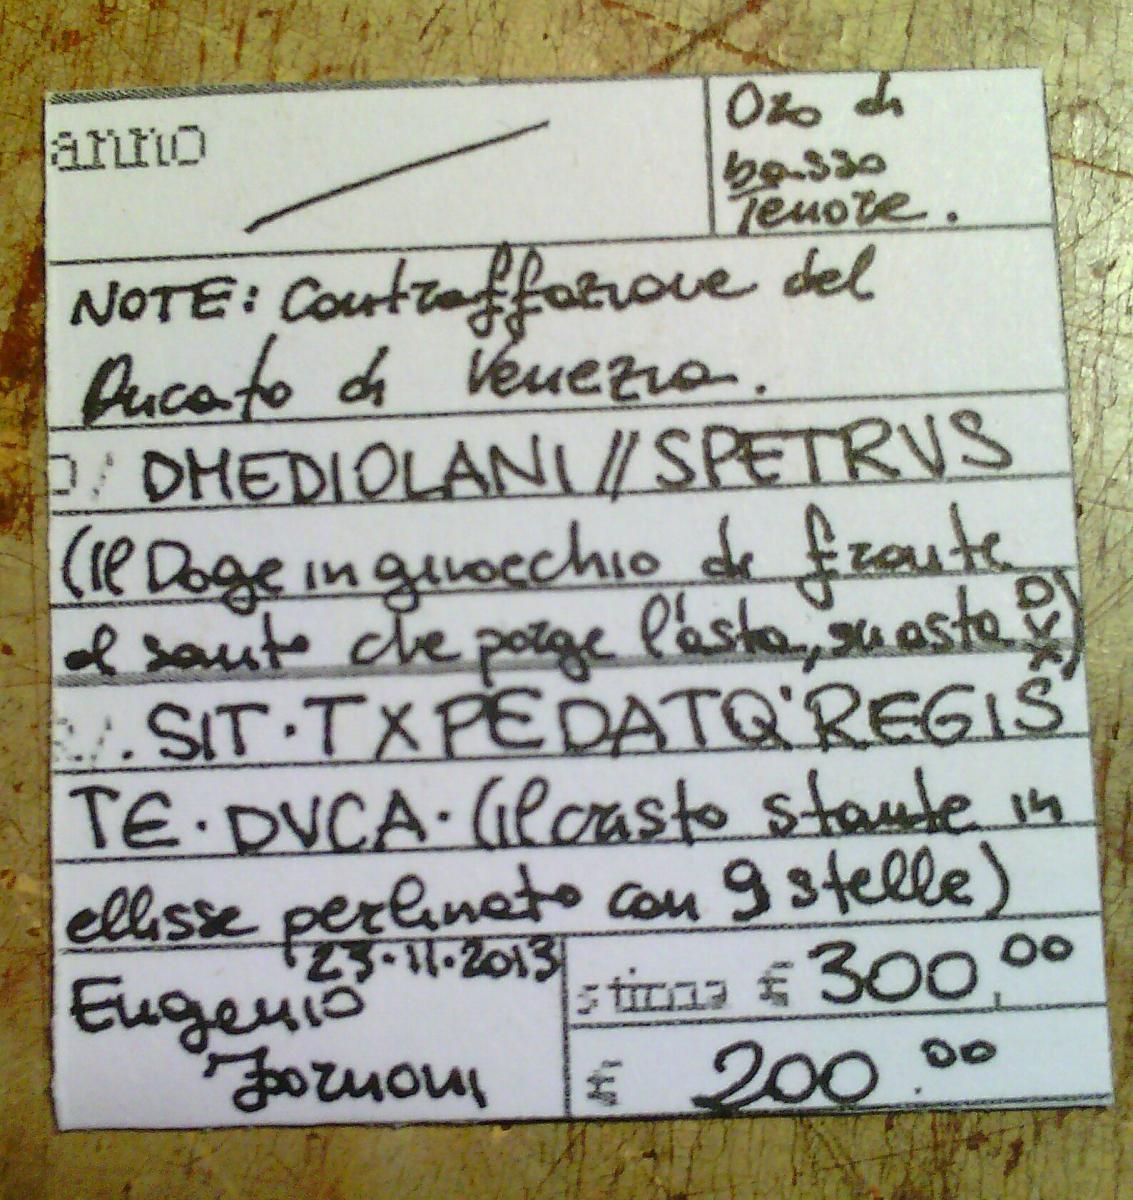 anno
Oro di
basso
Tenore.
NOTE: Contraffazione del
Ducato di Venezia.
D/ DMEDIOLANI // SPETRVS
(il Doge in ginocchio di fronte
al santo che porge l'asta, su asta DVX)
R/. SIT · T XPE DATQ' REGIS
TE · DVCA · (il cristo stante in
ellisse perlinato con 9 stelle)
23·11·2013
Eugenio
stima € 300,00
€ 200.00